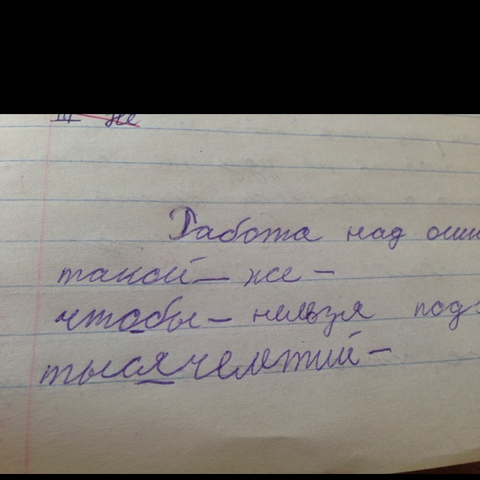 III не
Работа над оши
такой – же –
чтобы – нельзя под
тысячелетий –